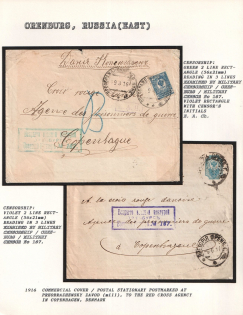 ORENBURG, RUSSIA(EAST)
CENSORSHIP:
GREEN 2 LINE RECT-
ANGLE (56x21mm)
READING IN 3 LINES
EXAMINED BY MILITARY
CENSORSHIP / OREN-
BURG / MILITARY
CENSOR No 167.
VIOLET RECTANGLE
WITH CENSOR'S
INITIALS
Croix rouge
Agence des prisonniers de guerre
Copenhague
CENSORSHIP:
VIOLET 2 LINE RECT-
ANGLE (56x21mm)
READING IN 3 LINES
EXAMINED BY MILITARY
CENSORSHIP / OREN-
BURG / MILITARY
CENSOR No 167.
A la croix rouge danoise
Agence des prisonniers de guerre
à Copenhague
1916 COMMERCIAL COVER / POSTAL STATIONARY POSTMARKED AT
PREOBRAZHENSKY ZAVOD (mill), TO THE RED CROSS AGENCY
IN COPENHAGEN, DENMARK